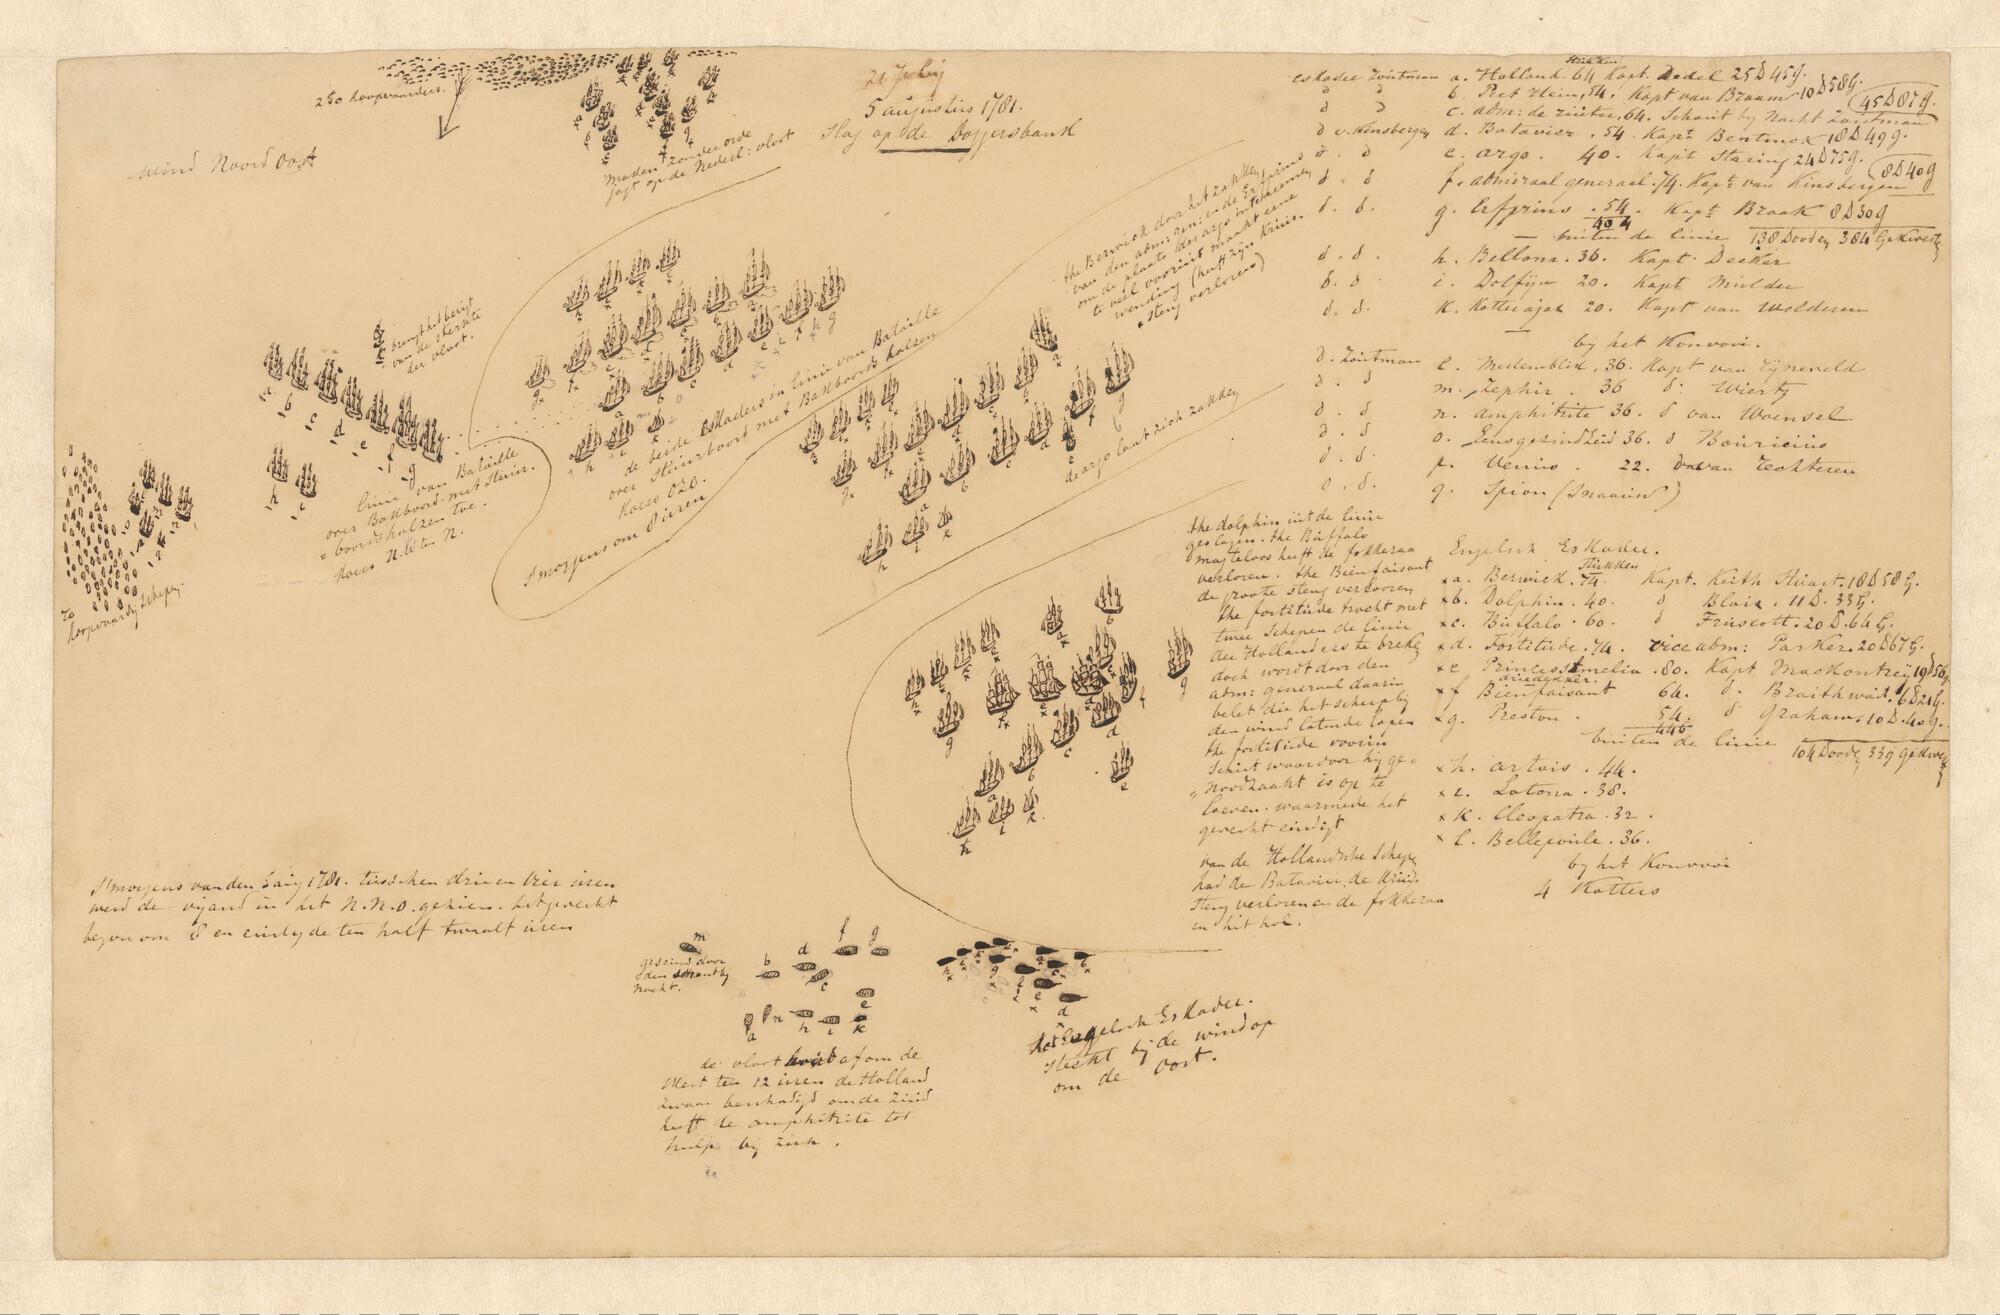 21 July
5 augustus 1781.
Slag op de Doggersbank
250 koopvaarders.
Wind Noord Oost
maken zonder orde
jagt op de Nederl: vloot
brengt het berigt
van de sterkte
der vloot.
linie van Bataille
over Bakboord met Stuur-
= boords halzen toe.
Koers N.W ten N.
70
koopvaardij schepen.
de beide eskaders in linie van Bataille
over Stuurboord met Bakboords halzen
Koers OZO.
S'morgens om 8 uren
the Berwick door het zakken
van den adm: gen: en de Erfprins
om de plaats der argo inteneemen
te veel vooruit maakt eene
wending (heeft zijn Kruis-
= steng verloren)
de argo laat zich zakken
S'morgens van den 5 aug 1781. tusschen drie en vier uren
werd de vijand in het N.N.O. gezien. het gevecht
begon om 8 en eindigde ten half twaalf uren
the dolphin uit de linie
geslagen. the Buffalo
masteloos heeft de fokkeraa
verloren. the Bienfaisant
de groote steng verlooren
the fortitude tracht met
twee schepen de linie
der Hollanders te breken
doch wordt door den
adm: generaal daarin
belet die het scheep bij
den wind latende lopen
the fortitude voorin
schiet waardoor hij ge=
"noodzaakt is op te
loeven. waarmede het
gevecht eindigt
van de Hollandsche Schepen
had de Batavier de Kruis
steng verloren en de fokkeraa
in het hol.
geseind door
den schout bij
nacht.
de vloot houdt af om de
West ten 12 uren de Holland
zwaar beschadigd om de zuid
heeft de amphitrite tot
hulp bij zich.
het Engelsch Eskader.
steekt bij de wind op
om de Oost.
Stukken
eskader Zoutman a. Holland. 64 Kapt. Dedel 25D 45g.
d d b. Piet Hein, 54. Kapt van Braam 10D 58G.
d d c. adm: de ruiter, 64. Schout bij Nacht Zoutman 45D 87g.
d v. Kinsbergen d. Batavier. 54. Kapt Bentinck 18D 49g.
d. d e. argo. 40. Kapt Staring 24D 75g.
d. d. f. admiraal generaal. 74. Kapt van Kinsbergen 8D 40g
d. d. g. Erfprins. 54. Kapt Braak 8D 30g
404
buiten de linie 138 Dooden 384 Gekwests
d. d. h. Bellona. 36. Kapt Decker
d. d i. Dolfijn 20. Kapt Mulder
d. d. k. Kotter ajax 20. Kapt van Welderen
bij het Konvooi.
d. Zoutman l. Medemblik. 36. Kapt van Rijneveld
d. d. m. Zephir. 36 d. Wierts
d. d n. amphitrite 36. d van Woensel
d. d. o. Eensgezindheid 36. d Bouricius
d. d. p. Venus. 22. d van Rechteren
d. d. q. Spion (Snaauw)
Engelsch Eskader.
Stukken
x a. Berwick. 74. Kapt. Keith Stuart. 18D 58G.
x b. Dolphin. 40. d Blair. 11D. 33G.
x c. Buffalo. 60. d Truscott. 20D. 64G.
x d. Fortitude. 74. vice adm: Parker. 20D 67G.
x e Princess amelia. 80. Kapt Mackontrij 19D 56g
driedekker.
x f Bienfaisant 64. d. Braithwait. 6D 21G.
x g. Preston. 54. d Graham. 10D. 40g.
446
buiten de linie 104 Dooden 339 gekwests
x h. artois. 44.
x i. Latona. 38.
x k. Cleopatra. 32.
x l. Bellepoule. 36.
bij het Konvooi
4 Kotters